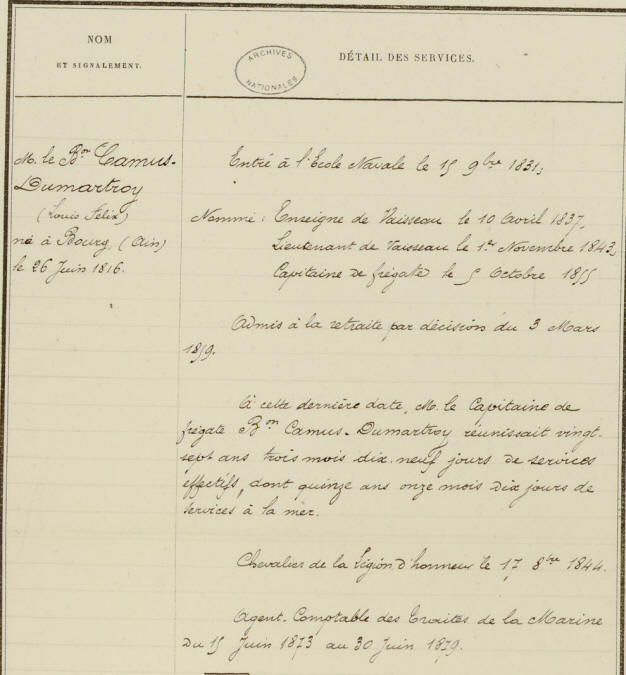 NOM
ET SIGNALEMENT.
ARCHIVES
NATIONALES
DÉTAIL DES SERVICES.
M. le Bon Camus-
Dumartroy
(Louis Félix)
né à Bourg, (Ain)
le 26 Juin 1816.
Entré à l'École Navale le 15 9bre 1831,
Nommé : Enseigne de Vaisseau le 10 Avril 1837,
Lieutenant de Vaisseau le 1er Novembre 1843,
Capitaine de frégate le 5 Octobre 1855
Admis à la retraite par décision du 3 Mars
1859.
À cette dernière date, M. le Capitaine de
frégate Bon Camus-Dumartroy réunissait vingt-
sept ans trois mois dix-neuf jours de services
effectifs, dont quinze ans onze mois dix jours de
services à la mer.
Chevalier de la Légion d'honneur le 17 8bre 1844.
Agent-Comptable des Traites de la Marine
Du 15 Juin 1873 au 30 Juin 1879.